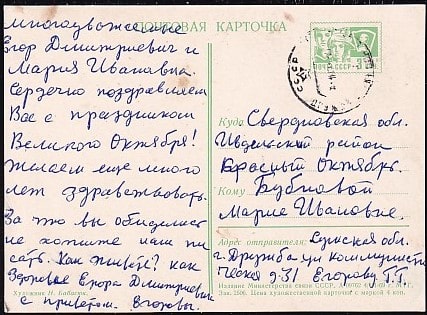 ПОЧТОВАЯ КАРТОЧКА
многоуважаемые
Егор Дмитриевич и
Мария Ивановна.
Сердечно поздравляем
Вас с праздником
Великого Октября!
Желаем еще много
лет здравствовать.
За что вы обиделись
не хотите нам пи
сать. Как живете? как
здоровье Егора Дмитриевич
с приветом. Егоровы.
Художник Н.
ПОЧТА СССР 3
Куда Свердловская обл.
Ивдельский район
Красный Октябрь
Кому Бубновой
Марие Ивановне.
Адрес отправителя: Сумская обл.
г. Дружба ул Коммунисти
ческая д 31 Егорову
Издание Министерства связи СССР.
Зак. Цена карточки с маркой 4 коп.